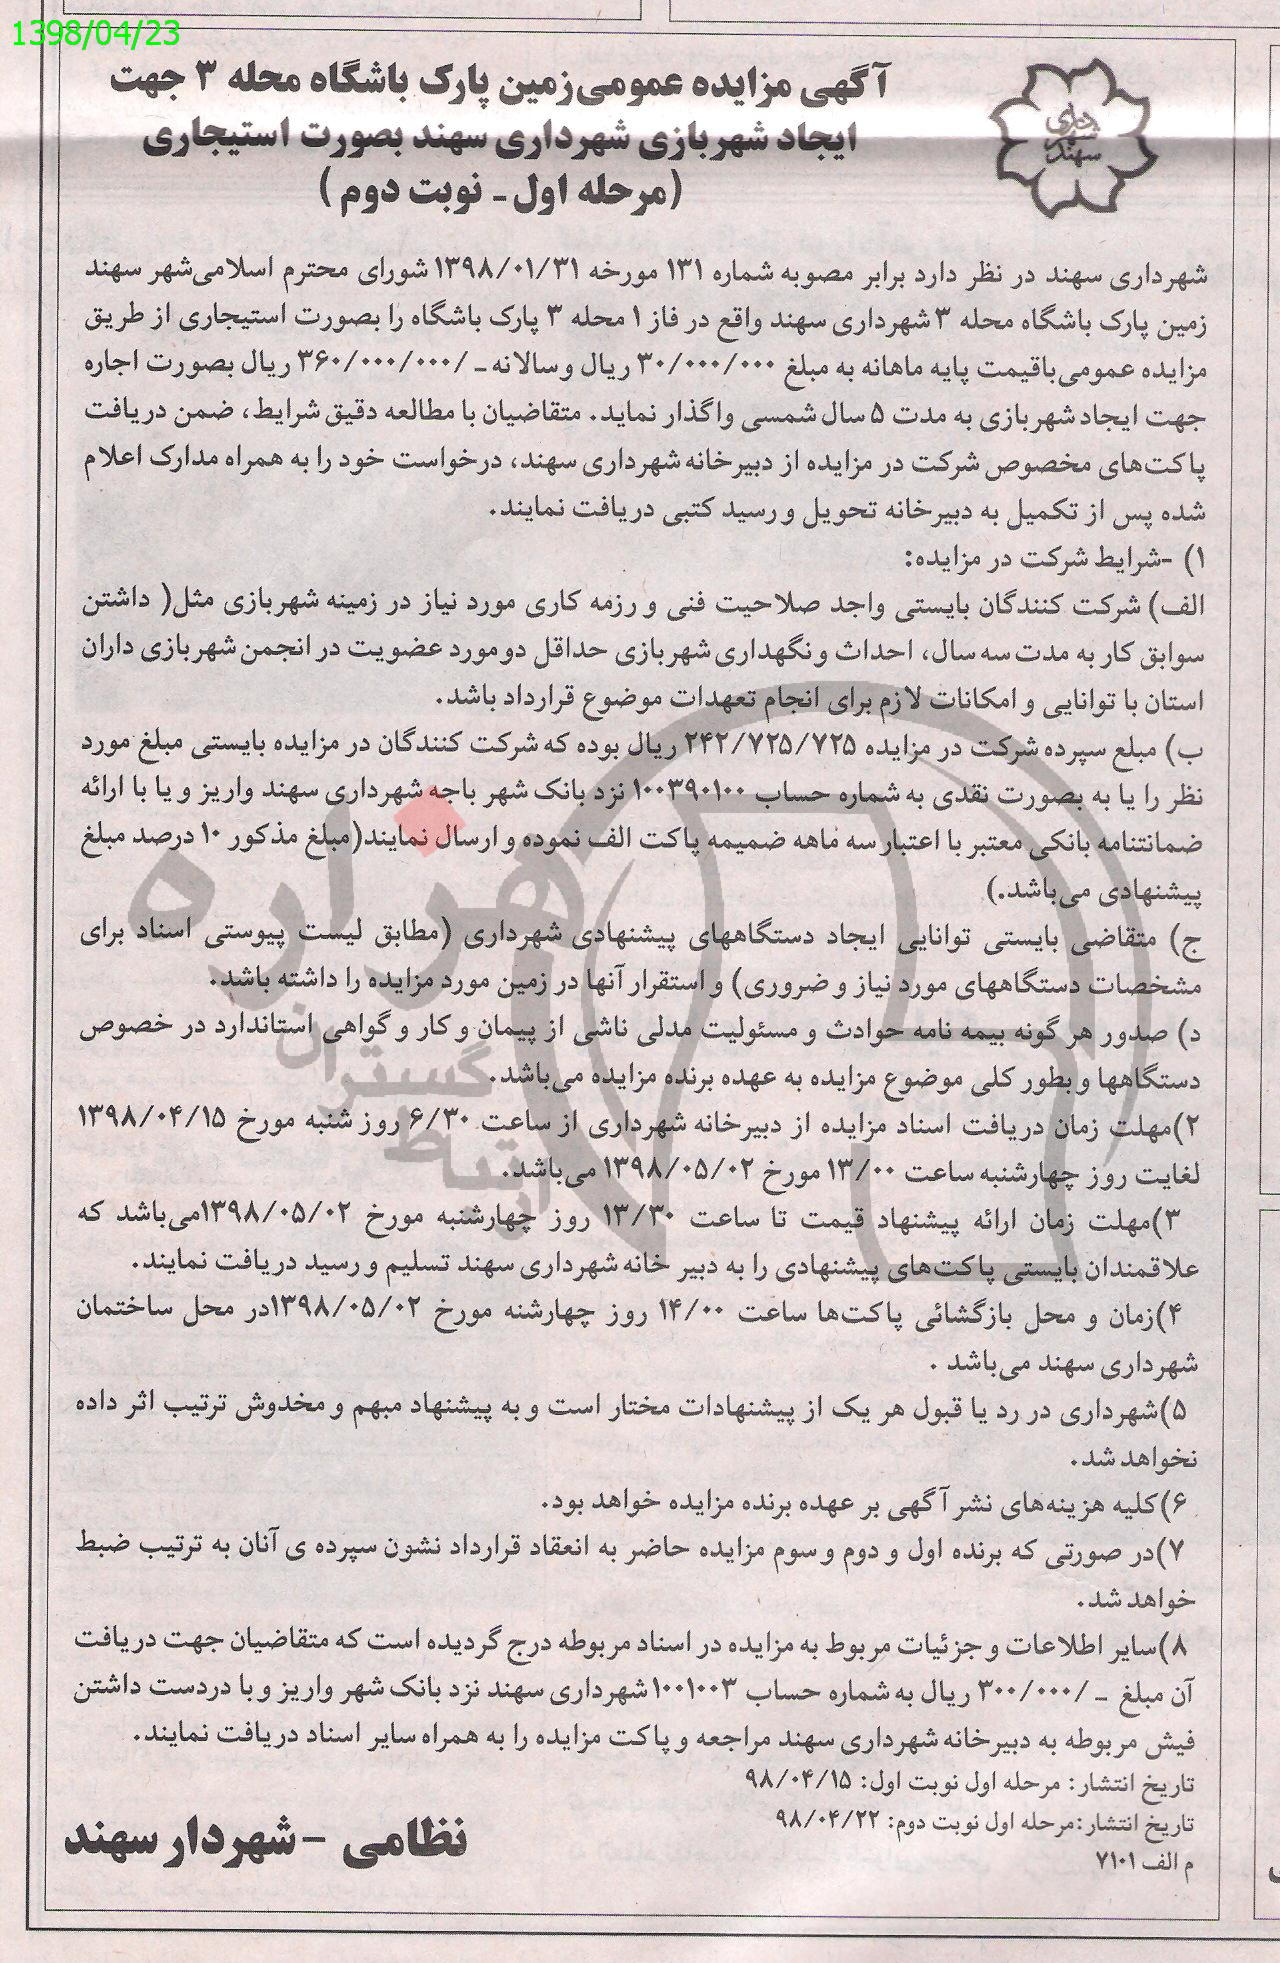 1398/04/23
شهرداری سهند
آگهی مزایده عمومی‌زمین پارک باشگاه محله ۳ جهت
ایجاد شهربازی شهرداری سهند بصورت استیجاری
(مرحله اول ـ نوبت دوم)
شهرداری سهند در نظر دارد برابر مصوبه شماره ۱۳۱ مورخه ۱۳۹۸/۰۱/۳۱ شورای محترم اسلامی‌شهر سهند
زمین پارک باشگاه محله ۳ شهرداری سهند واقع در فاز ۱ محله ۳ پارک باشگاه را بصورت استیجاری از طریق
مزایده عمومی‌باقیمت پایه ماهانه به مبلغ ۳۰/۰۰۰/۰۰۰ ریال و سالانه ـ /۳۶۰/۰۰۰/۰۰۰ ریال بصورت اجاره
جهت ایجاد شهربازی به مدت ۵ سال شمسی واگذار نماید. متقاضیان با مطالعه دقیق شرایط، ضمن دریافت
پاکت‌های مخصوص شرکت در مزایده از دبیرخانه شهرداری سهند، درخواست خود را به همراه مدارک اعلام
شده پس از تکمیل به دبیرخانه تحویل و رسید کتبی دریافت نمایند.
۱) -شرایط شرکت در مزایده:
الف) شرکت کنندگان بایستی واجد صلاحیت فنی و رزمه کاری مورد نیاز در زمینه شهربازی مثل( داشتن
سوابق کار به مدت سه سال، احداث و نگهداری شهربازی حداقل دو مورد عضویت در انجمن شهربازی داران
استان با توانایی و امکانات لازم برای انجام تعهدات موضوع قرارداد باشد.
ب) مبلغ سپرده شرکت در مزایده ۲۴۲/۷۲۵/۷۲۵ ریال بوده که شرکت کنندگان در مزایده بایستی مبلغ مورد
نظر را یا به بصورت نقدی به شماره حساب ۱۰۰۳۹۰۱۰۰ نزد بانک شهر باجه شهرداری سهند واریز و یا با ارائه
ضمانتنامه بانکی معتبر با اعتبار سه ماهه ضمیمه پاکت الف نموده و ارسال نمایند(مبلغ مذکور ۱۰ درصد مبلغ
پیشنهادی می‌باشد.)
ج) متقاضی بایستی توانایی ایجاد دستگاههای پیشنهادی شهرداری (مطابق لیست پیوستی اسناد برای
مشخصات دستگاههای مورد نیاز و ضروری) و استقرار آنها در زمین مورد مزایده را داشته باشد.
د) صدور هر گونه بیمه نامه حوادث و مسئولیت مدلی ناشی از پیمان و کار و گواهی استاندارد در خصوص
دستگاهها و بطور کلی موضوع مزایده به عهده برنده مزایده می‌باشد.
۲)مهلت زمان دریافت اسناد مزایده از دبیرخانه شهرداری از ساعت ۶/۳۰ روز شنبه مورخ ۱۳۹۸/۰۴/۱۵
لغایت روز چهارشنبه ساعت ۱۳/۰۰ مورخ ۱۳۹۸/۰۵/۰۲ می‌باشد.
۳)مهلت زمان ارائه پیشنهاد قیمت تا ساعت ۱۳/۳۰ روز چهارشنبه مورخ ۱۳۹۸/۰۵/۰۲می‌باشد که
علاقمندان بایستی پاکت‌های پیشنهادی را به دبیر خانه شهرداری سهند تسلیم و رسید دریافت نمایند.
۴)زمان و محل بازگشائی پاکت‌ها ساعت ۱۴/۰۰ روز چهارشنه مورخ ۱۳۹۸/۰۵/۰۲در محل ساختمان
شهرداری سهند می‌باشد .
۵)شهرداری در رد یا قبول هر یک از پیشنهادات مختار است و به پیشنهاد مبهم و مخدوش ترتیب اثر داده
نخواهد شد.
۶)کلیه هزینه‌های نشر آگهی بر عهده برنده مزایده خواهد بود.
۷)در صورتی که برنده اول و دوم و سوم مزایده حاضر به انعقاد قرارداد نشون سپرده ی آنان به ترتیب ضبط
خواهد شد.
۸)سایر اطلاعات و جزئیات مربوط به مزایده در اسناد مربوطه درج گردیده است که متقاضیان جهت دریافت
آن مبلغ ـ /۳۰۰/۰۰۰ ریال به شماره حساب ۱۰۰۱۰۰۳شهرداری سهند نزد بانک شهر واریز و با دردست داشتن
فیش مربوطه به دبیرخانه شهرداری سهند مراجعه و پاکت مزایده را به همراه سایر اسناد دریافت نمایند.
تاریخ انتشار: مرحله اول نوبت اول: ۹۸/۰۴/۱۵
تاریخ انتشار:مرحله اول نوبت دوم: ۹۸/۰۴/۲۲
م الف ۷۱۰۱
نظامی - شهردار سهند
هزاره
گستران
ارتباط